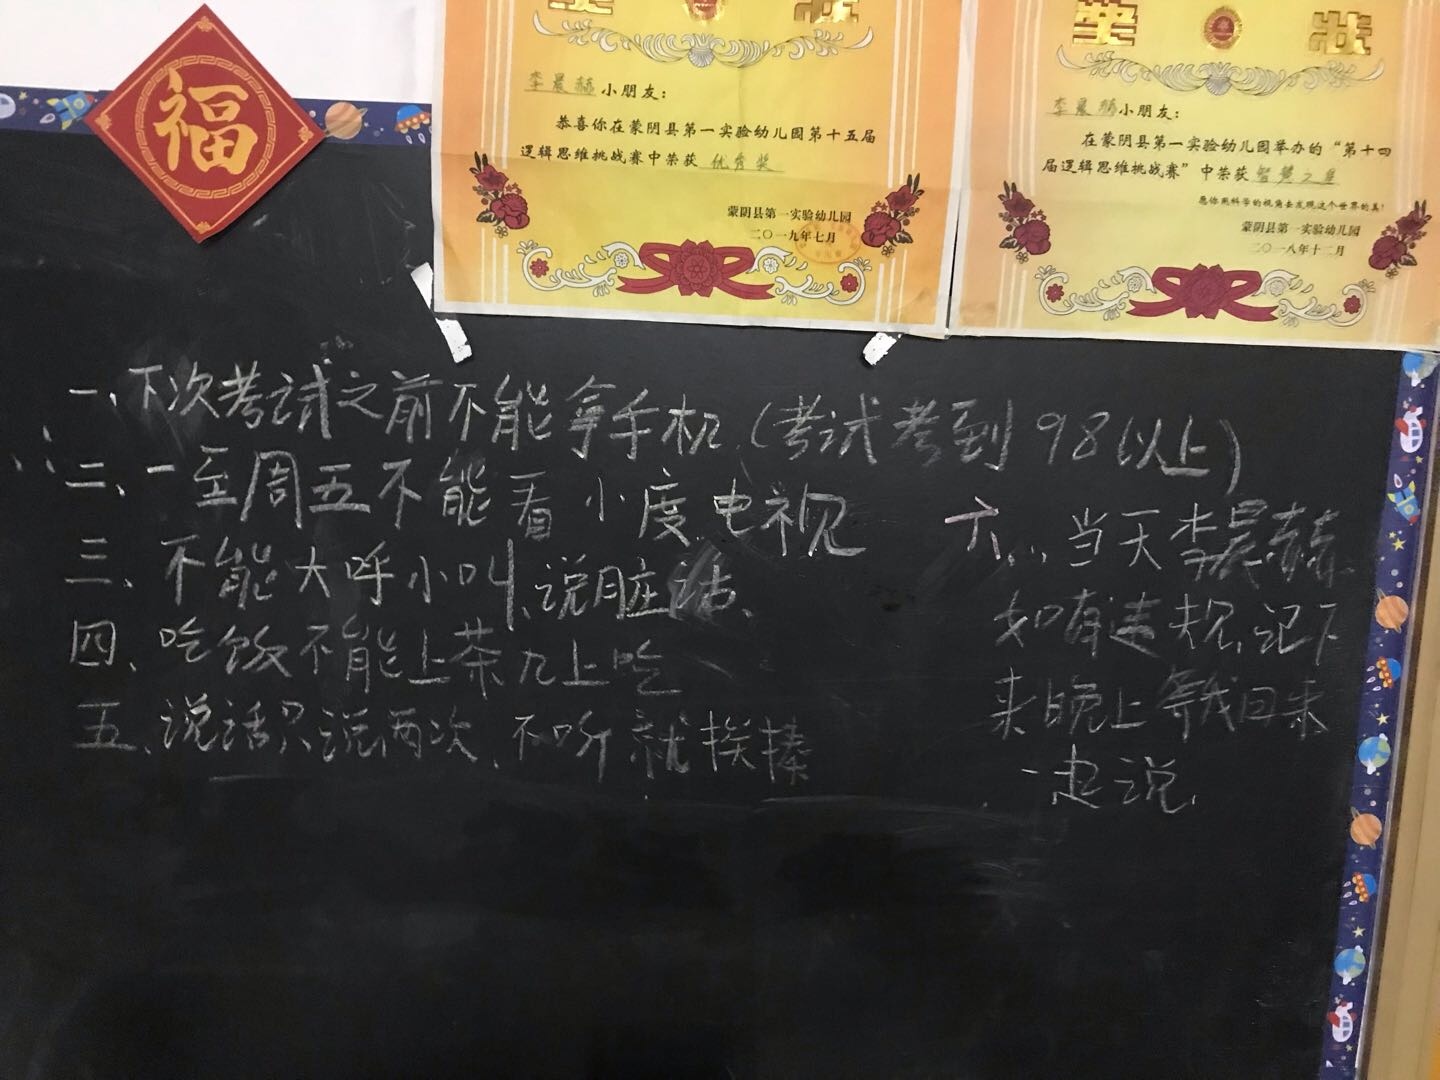 福
奖 状
李晨赫小朋友：
恭喜你在蒙阴县第一实验幼儿园第十五届
逻辑思维挑战赛中荣获 优秀奖
蒙阴县第一实验幼儿园
二〇一九年七月
奖 状
李晨赫小朋友：
在蒙阴县第一实验幼儿园举办的“第十四
届逻辑思维挑战赛”中荣获智慧之星
愿你用科学的视角去发现这个世界的美！
蒙阴县第一实验幼儿园
二〇一八年十二月
一、下次考试之前不能拿手机（考试考到98以上）
二、一至周五不能看小度、电视
三、不能大呼小叫、说脏话、
四、吃饭不能上茶九上吃
五、说话只说两次、不听就挨揍
六、当天李晨赫
如有违规、记下
来晚上等我回来
一起说、